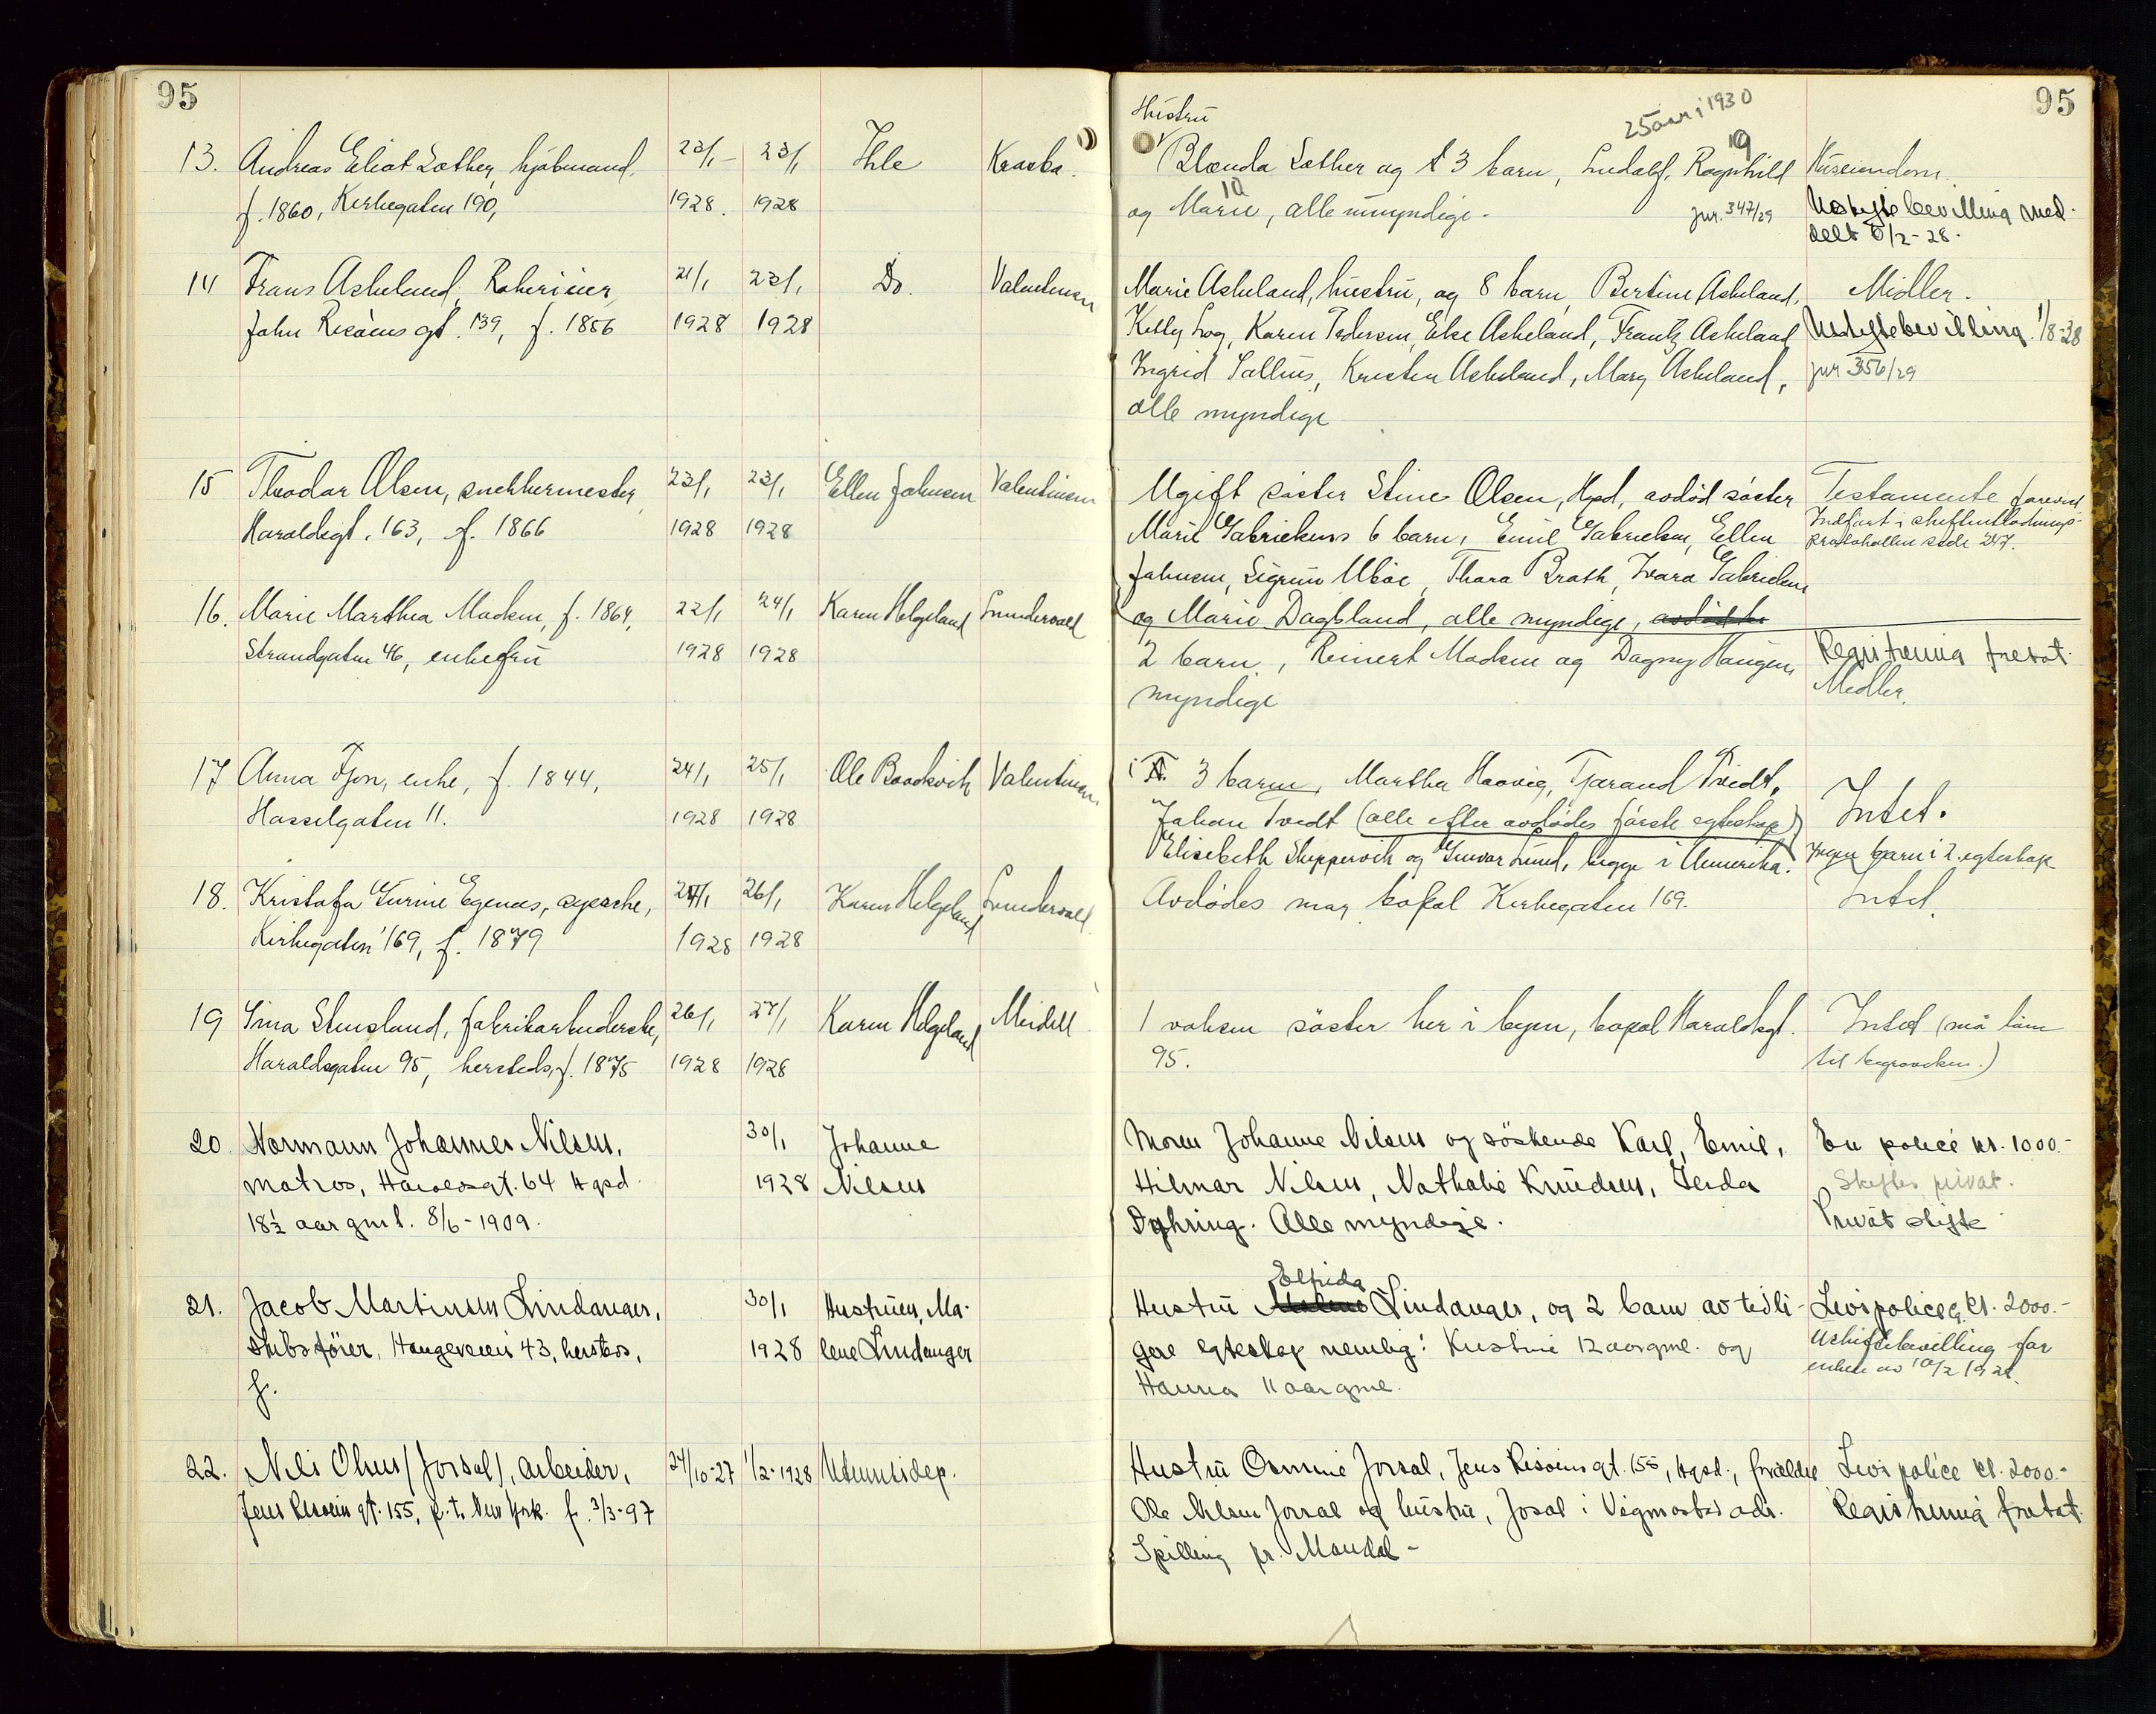 95
13. Andreas Eliot Sæther, hjòbmand. 23/1 - 23/1 Ihle Kracka.
f. 1860, Kirkegaten 190, 1928. 1928
14 Frans Askeland, Rokerieier, 21/1 23/1 Do. Valentinsen
John Risòens gt. 139, f. 1856 1928 1928
15 Theodor Olsen, snekkermester, 23/1 23/1 Ellen Johnsen Valentinsen
Haraldsgt. 163, f. 1866 1928 1928
16. Marie Marthea Madsen, f. 1864, 22/1 24/1 Karen Helgeland
Strandgaten 46, enkefru 1928 1928
17 Anna Tjøn, enke, f. 1844, 24/1 25/1 Ole Valentinsen
Hasselgaten 11. 1928 1928
18. Kristofa Gurine Egenæs, syerske, 24/1 26/1 Karen Helgeland
Kirkegaten 169, f. 1879 1928 1928
19 Sina Stensland, fabrikarbeiderske, 26/1 27/1 Karen Helgeland Meidell
Haraldsgaten 95, hersteds, f. 1875 1928 1928
20. Normann Johannes Nilsen, 30/1 Johanne
matros, Haraldsgt. 64 Hgsd. 1928 Nilsen
18½ aar gml. 8/6 - 1909.
21. Jacob Martinsen Lindanger, 30/1 Hustruen, Ma-
skibsfører, Haugeveien 43, hersteds, 1928 lene Lindanger
f.
22. Nils Olsen (Jorsal), arbeider, 24/10-27 1/2-1928 Utenriksdep.
Jens Risøens gt. 155, p.t. New York. f. 3/3-97
95
Hustru 25 aar i 1930
19
Blenda Sæther og 3 barn, Ludolf, Ragnhild Huseiendom.
10
og Marie, alle umyndige. jur. 347/29 Uskiftebevilling med-
delt 6/2-28.
Marie Askeland, hustru, og 8 barn, Bertine Askeland, Midler.
Kitty Log, Karen Pedersen, Else Askeland, Frantz Askeland Uskiftebevilling. 1/8-28
Ingrid Sallius, Kristen Askeland, Mary Askeland, jur 356/29
alle myndige
Ugift søster Stine Olsen, Hgsd, avdød søster Testamente forevist
Marie Gabrielsens 6 barn, Emil Gabrielsen, Ellen Indført i skifteutlodnings-
protokollen side 247.
Johnsen, Sigrun Ubøe, Thora Brath, Ivara Gabrielsen
og Marie Dagsland, alle myndige, avdødes
2 barn, Reinert Madsen og Dagny Haugen, Registrering frafat.
myndige Midler.
3 barn, Martha Haavig, Tjerand Tvedt, Intet.
Johan Tvedt (alle efter avdødes første egteskap)
Elisebeth Skeppervik og Gunvar Lund, begge i Amerika. Ingen barn i 2. egteskap
Avdødes mor, bopæl Kirkegaten 169. Intet.
1 voksen søster her i byen, bopæl Haraldsgt. Intet (må laane
95. til begravelsen.)
Moren Johanne Nilsen og søskende Karl, Emil, En police kr. 1000.-
Hilmar Nilsen, Nathalie Knudsen, Gerda Skiftes privat.
Dyhring. Alle myndige. Privat skifte
Elfrida
Hustru Malene Lindanger, og 2 barn av tidli- Livspolice kr. 2000.-
gere egteskap nemlig: Kristine 12 aar gml. og Uskiftebevilling for
Hanna 11 aar gml. enken av 10/2 1928.
Hustru Osmine Jorsal, Jens Risøens gt. 155, Hgsd., forældre Livspolice kr. 2000.-
Ole Nilsen Jorsal og hustru, Josal i Vigmostad adr. Registrering frafat.
Spilling pr. Mandal -